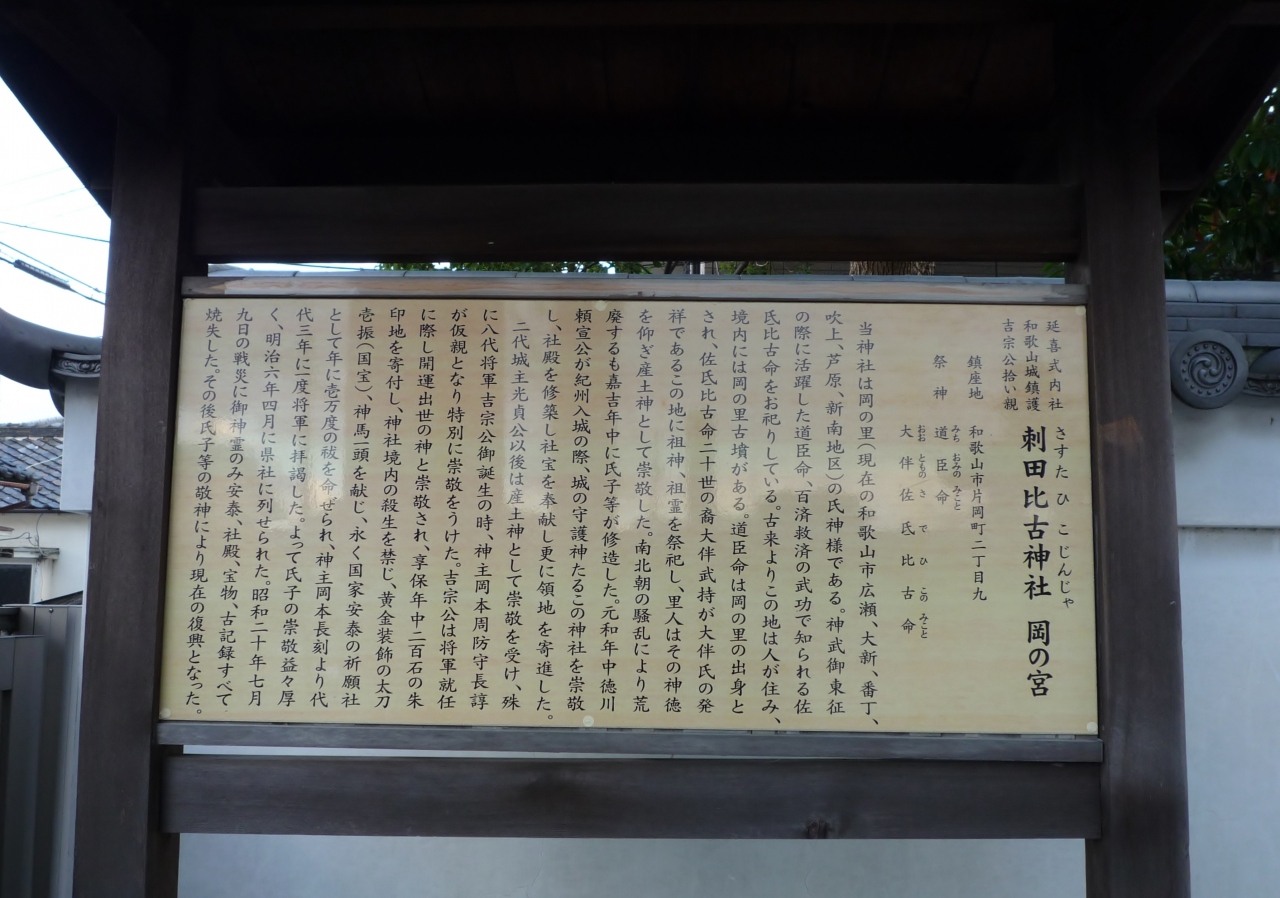 延喜式内社
和歌山城鎮護
吉宗公拾い親
さすたひこじんじゃ
刺田比古神社 岡の宮
鎮座地 和歌山市片岡町二丁目九
みちおみのみこと
祭神 道臣命
おおとものさでひこのみこと
大伴佐氐比古命
当神社は岡の里(現在の和歌山市広瀬、大新、番丁、
吹上、芦原、新南地区)の氏神様である。神武御東征
の際に活躍した道臣命、百済救済の武功で知られる佐
氐比古命をお祀りしている。古来よりこの地は人が住み、
境内には岡の里古墳がある。道臣命は岡の里の出身と
され、佐氐比古命二十世の裔大伴武持が大伴氏の発
祥であるこの地に祖神、祖霊を祭祀し、里人はその神徳
を仰ぎ産土神として崇敬した。南北朝の騒乱により荒
廃するも嘉吉年中に氏子等が修造した。元和年中徳川
頼宣公が紀州入城の際、城の守護神たるこの神社を崇敬
し、社殿を修築し社宝を奉献し更に領地を寄進した。
二代城主光貞公以後は産土神として崇敬を受け、殊
に八代将軍吉宗公御誕生の時、神主岡本周防守長諄
が仮親となり特別に崇敬をうけた。吉宗公は将軍就任
に際し開運出世の神と崇敬され、享保年中二百石の朱
印地を寄付し、神社境内の殺生を禁じ、黄金装飾の太刀
壱振(国宝)、神馬一頭を献じ、永く国家安泰の祈願社
として年に壱万度の祓を命ぜられ、神主岡本長刻より代
代三年に一度将軍に拝謁した。よって氏子の崇敬益々厚
く、明治六年四月に県社に列せられた。昭和二十年七月
九日の戦災に御神霊のみ安泰、社殿、宝物、古記録すべて
焼失した。その後氏子等の敬神により現在の復興となった。